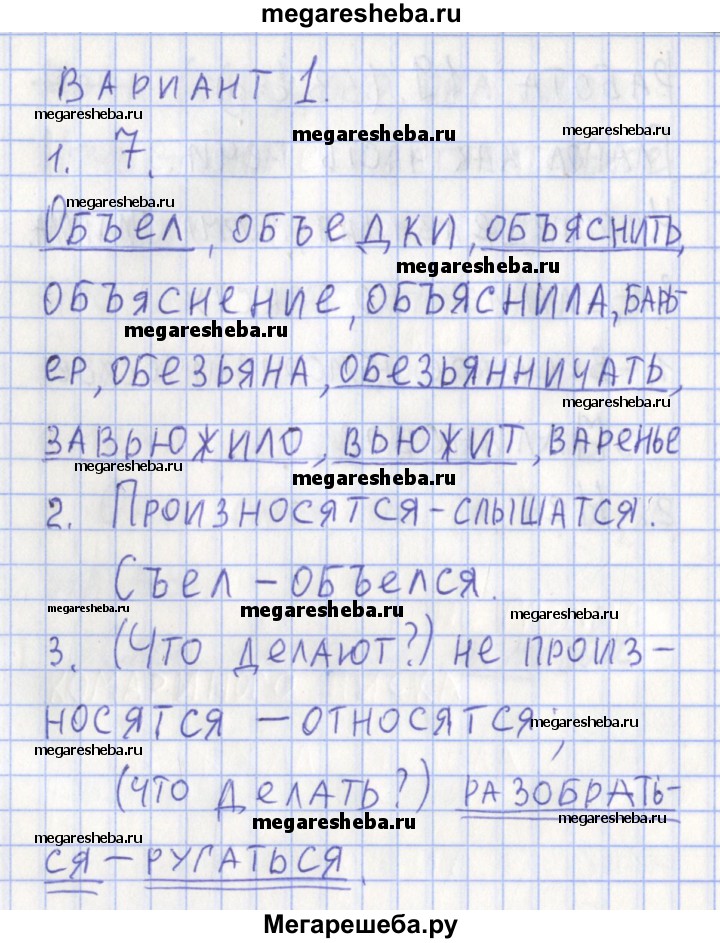 megaresheba.ru
ВАРИАНТ 1.
megaresheba.ru
megaresheba.ru megaresheba.ru
1. 7.
megaresheba.ru
ОБЪЕЛ, ОБЪЕДКИ, ОБЪЯСНИТЬ,
megaresheba.ru
ОБЪЯСНЕНИЕ, ОБЪЯСНИЛА, БАРЬ-
megaresheba.ru
ЕР, ОБЕЗЬЯНА, ОБЕЗЬЯННИЧАТЬ,
megaresheba.ru
ЗАВЬЮЖИЛО, ВЬЮЖИТ, ВАРЕНЬЕ
megaresheba.ru megaresheba.ru
2. ПРОИЗНОСЯТСЯ - СЛЫШАТСЯ.
СЪЕЛ - ОБЪЕЛСЯ.
megaresheba.ru megaresheba.ru megaresheba.ru
3. (ЧТО ДЕЛАЮТ?) НЕ ПРОИЗ-
НОСЯТСЯ - ОТНОСЯТСЯ;
megaresheba.ru
megaresheba.ru
(ЧТО ДЕЛАТЬ?) РАЗОБРАТЬ-
megaresheba.ru megaresheba.ru
megaresheba.ru
СЯ - РУГАТЬСЯ.
Мегарешеба.ру